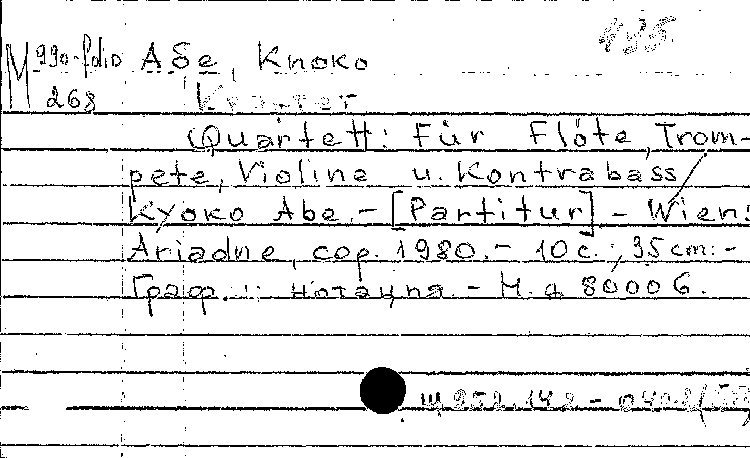 435.
М 990-folio Абе, Киоко
268 Квартет
Quartett: Für Flöte, Trom-
pete, Violine u. Kontrabass /
Kyoko Abe. - [Partitur] - Wien:
Ariadne, cop. 1980. - 10 с.; 35 cm: -
Граф. нотация. - Н. д 80006.
Щ 252.142 - 040.2